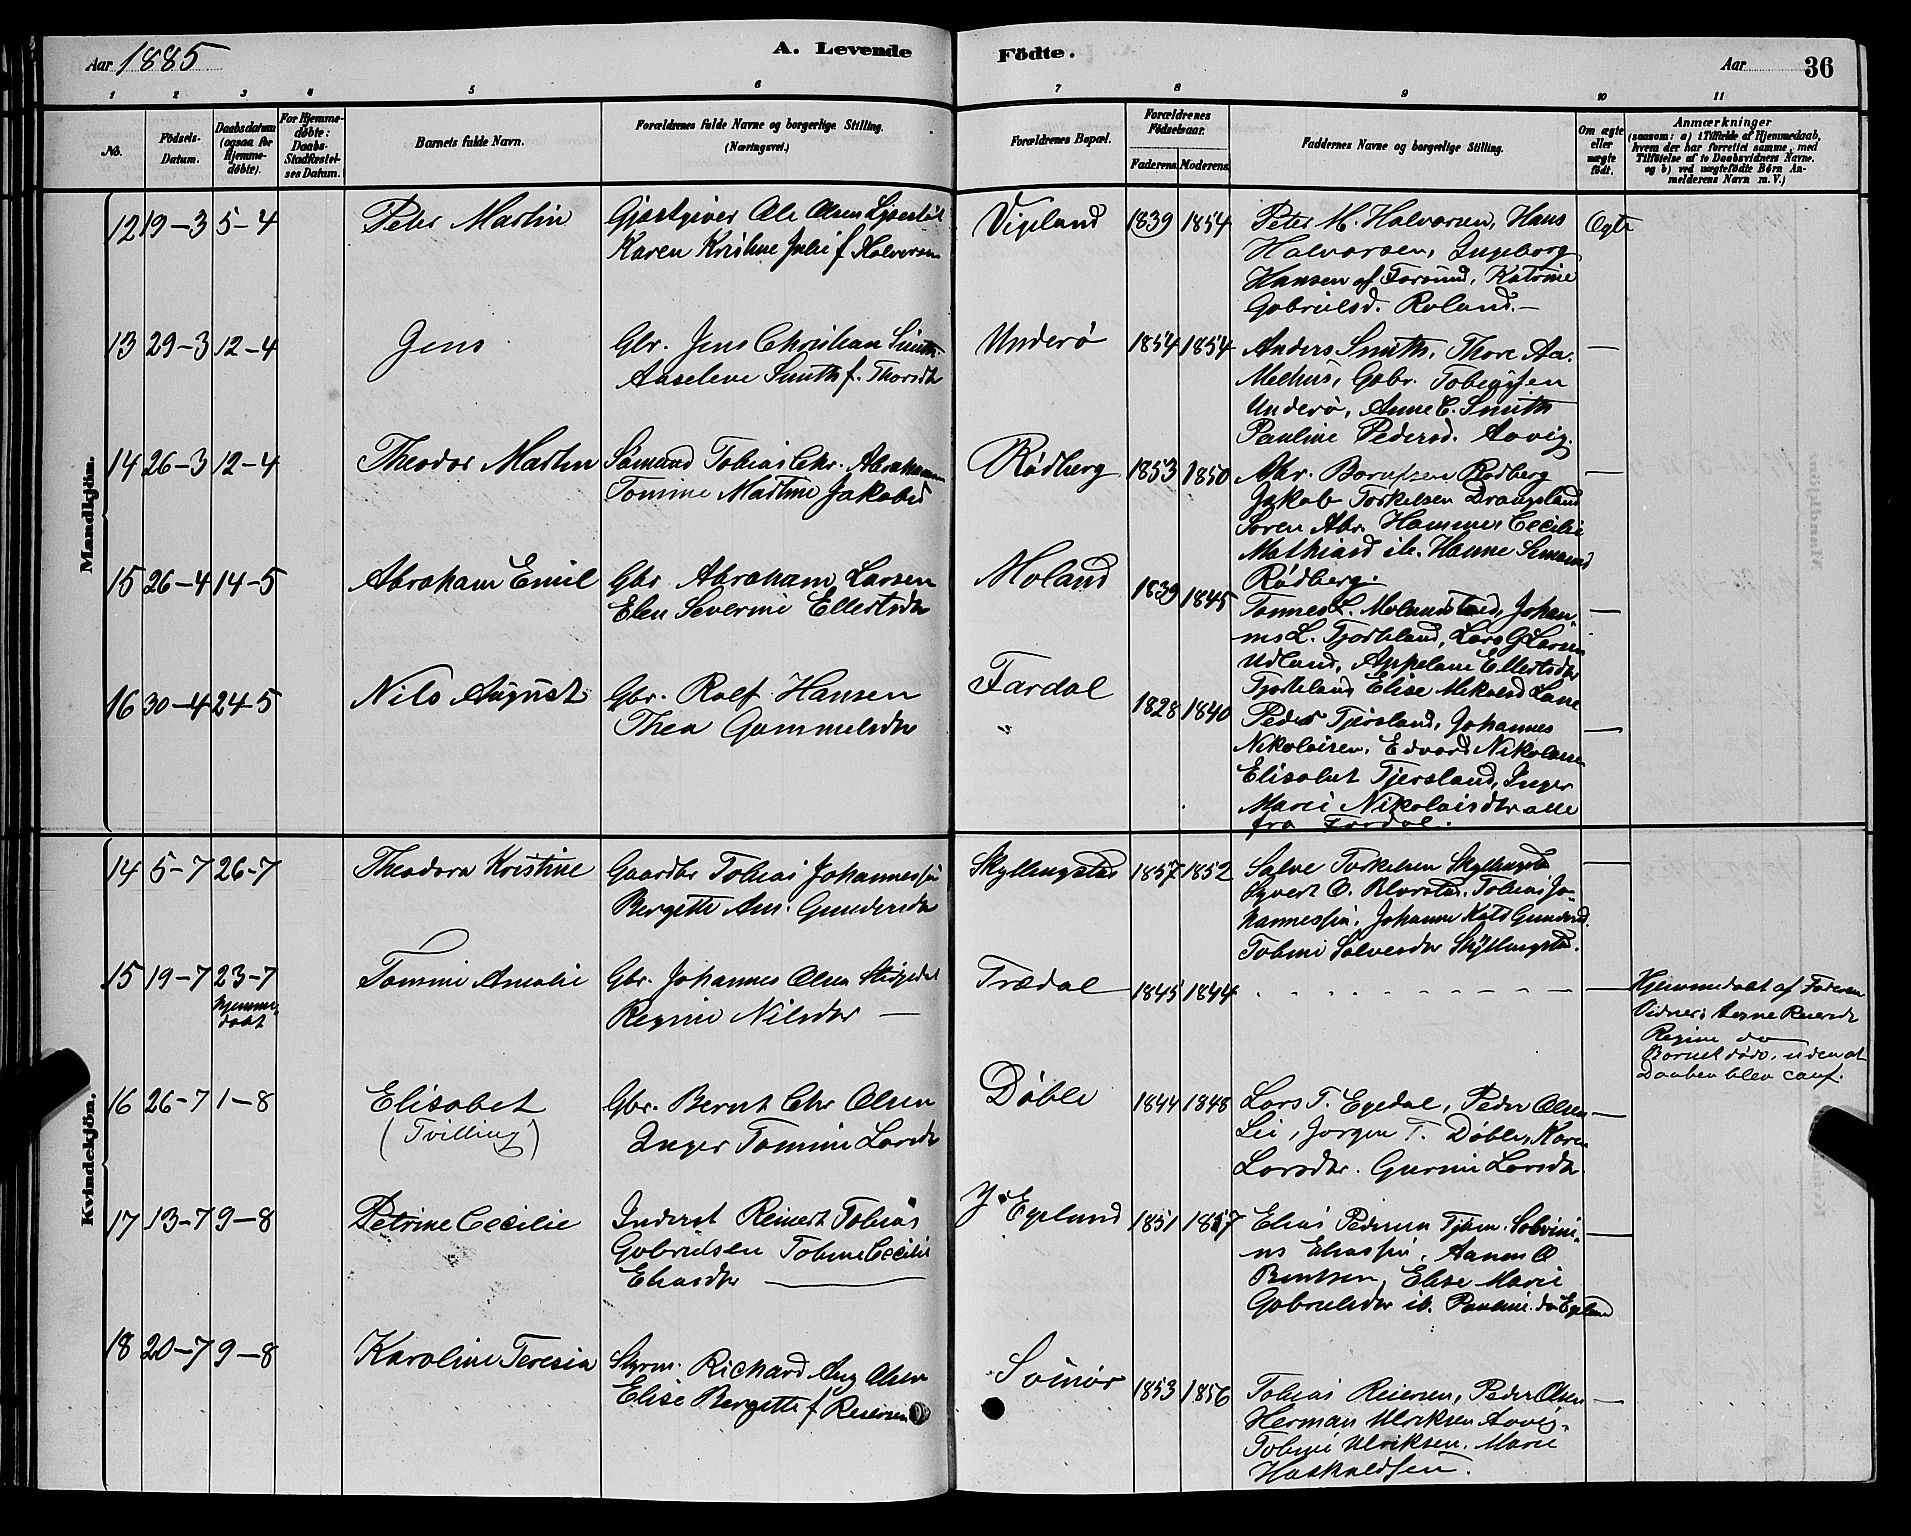 Aar 1885
A. Levende Födte.
Aar 36
1 2 3 4 5 6 7 8 9 10 11
No.
Födsels-Datum.
Daabsdatum (ogsaa for Hjemme-døbte).
For Hjemme-døbte: Daabs-Stadfæstel-ses Datum.
Barnets fulde Navn.
Forældrenes fulde Navne og borgerlige Stilling. (Næringsvei.)
Forældrenes Bopæl.
Forældrenes Födselsaar.
Faderens. Moderens.
Faddernes Navne og borgerlige Stilling.
Om ægte eller uægte født.
Anmærkninger
(saasom: a) i Tilfælde af Hjemmedaab, hvem der har forrettet samme, med Tilföielse af to Daabsvidners Navne, og b) ved uægtefödte Børn An-melderens Navn m. V.)
Mandkjön.
12 19-3 5-4 Peter Martin Gjæstgiver Ole Olsen
Karen Kristine Julie f. Halvorsen
Vigeland 1839 1854
Peter M. Halvorsen, Hans
Halvorsen, Ingeborg
Hansen af Farsund, Katrine
Gabrielsd. Roland.—
Ægte
13 29-3 12-4 Jens Gbr. Jens Christian Smith
Aaselene Smith f. Thorsdtr
Underø 1854 1854
Anders Smith, Thore Aa.
Melhus, Gabr. Tobiassen
Underø, Anne C. Smith
Pauline Pedersd. Aavig.
—
14 26-3 12-4 Theodor Martin Sømand Tobias Chr. Abrahamsen
Tomine Martine Jakobsd
Rødberg 1853 1850
Abr. Rødberg
Jakob Torkelsen Drangsland
Søren Abr. Hammer Cecilie
Mathiasd ib. Hanne
Rødberg.
—
15 26-4 14-5 Abraham Emil Gbr. Abraham Larsen
Elen Severine Ellertsdtr
Moland 1839 1845
Tønnes L. Johan-
nes L. Lars G Larsen
Udland, Ellertsdtr
Elise
—
16 30-4 24-5 Nils August Gbr. Rolf Hansen
Thea Gammelsdtr
Fardal
"
1828 1840
Peder Tjørsland, Johannes
Nikolaisen, Edvard Nikolaisen
Elisabet Tjersland, Inger
Marie Nikolaisdtr alle
fra Fardal.
—
Kvindekjön.
14 5-7 26-7 Theodora Kristine Gaardbr Tobias Johannessen
Bergette Gundersdtr
Skyllingstad 1857 1852
Salve Torkelsen Skyllingstad
Tobias Jo-
hannessen, Johanne Gundersd.
Tobine Salvesdtr Skyllingstad.
—
15 19-7 23-7
hjemme-
døbt
Tomine Amalie Gbr. Johannes Olsen
Regine Nilsdtr —
Trædal 1845 1844
—
Hjemmedøbt af Faderen
Vidner: Reiersdtr
Regine do
Barnet døde, uden at
Daaben blev conf.
16 26-7 1-8 Elisabet
(Tvilling)
Gbr. Bernt Chr Olsen
Inger Tomine Larsdtr
Døble 1844 1848
Lars T. Egedal, Peder Olsen
Lei, Jørgen T. Døble, Karen
Larsdtr. Gurine Larsdtr.
—
17 13-7 9-8 Petrine Cecilie Inderst Reinert Tobias
Gabrielsen Tobine Cecilie
Eliasdtr —
Y. Egeland 1851 1857
Elias Pedersen
Eliassen,
Elise Marie
Gabrielsdtr ib. Pauline do Egeland
—
18 20-7 9-8 Karoline Teresia Styrm. Richard Aug Olsen
Elise Bergette f Reiersen
1853 1856
Tobias Reiersen, Peder Olsen
Herman Ulriksen Aavig,
Tobine Ulriksen, Marie
—